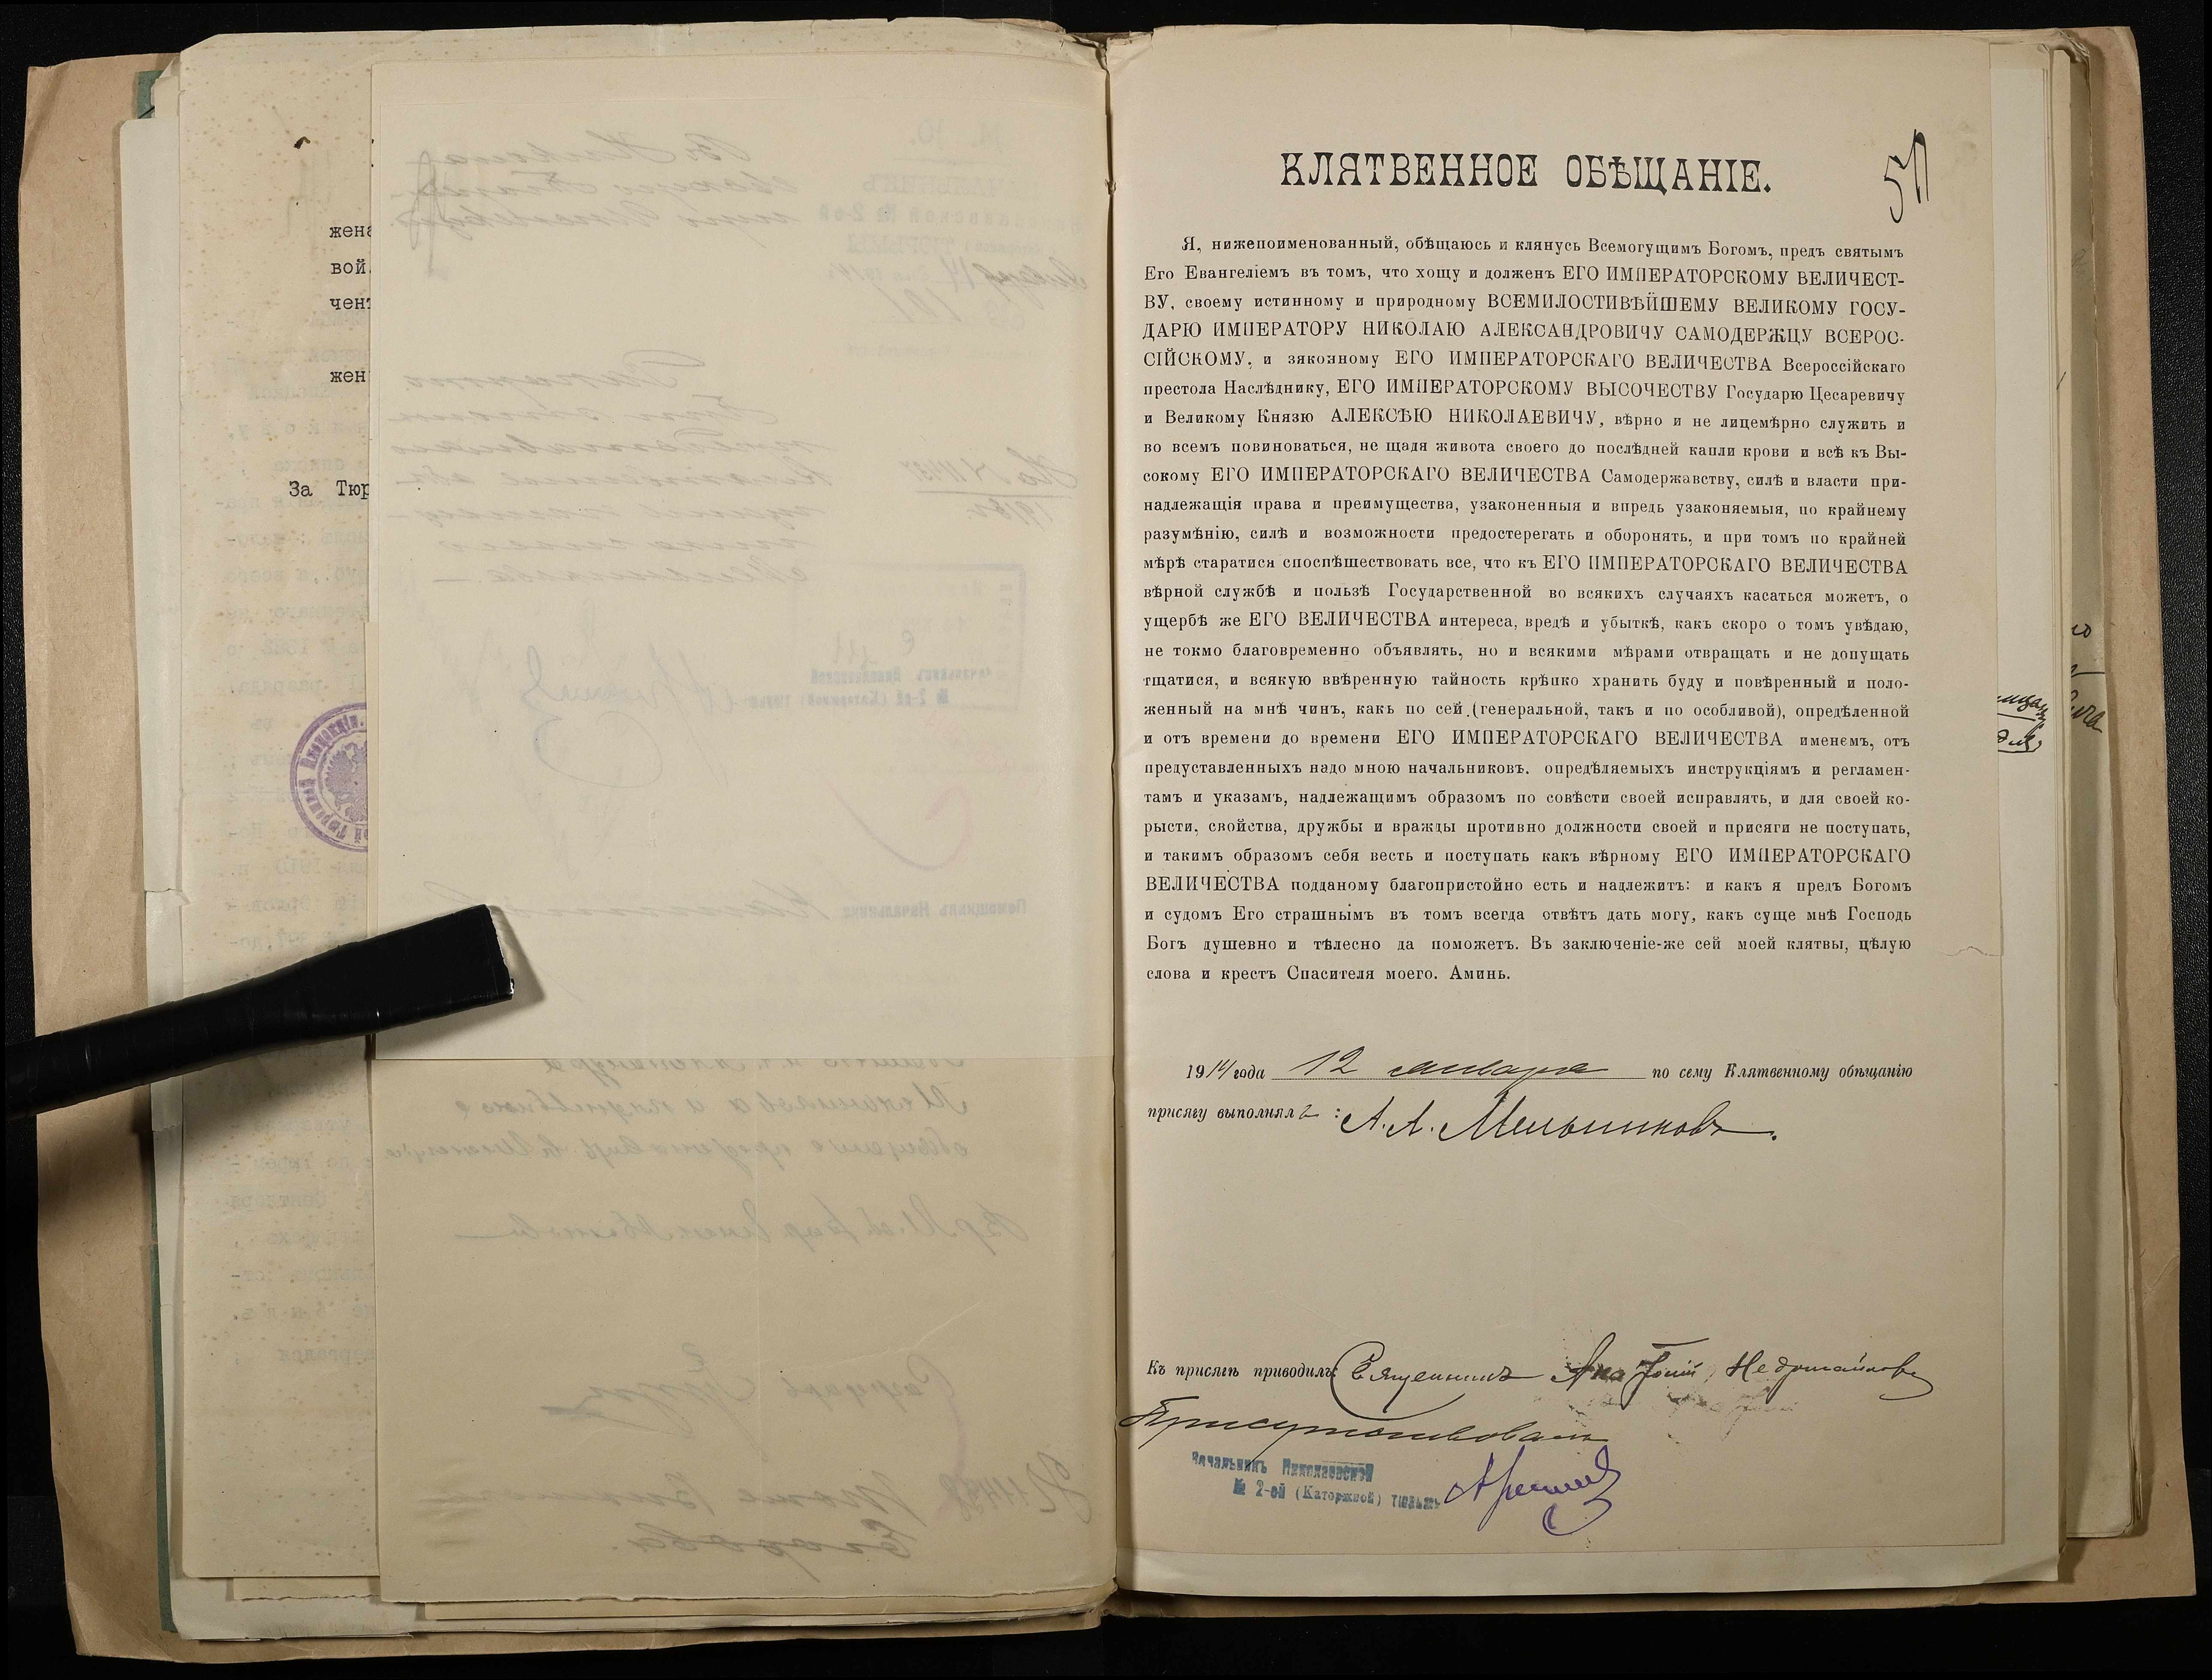 жен
вой.
чен
жен
За Тюр
КЛЯТВЕННОЕ ОБѢЩАНІЕ.
Я, нижепоименованный, обѣщаюсь и клянусь Всемогущимъ Богомъ, предъ святымъ
Его Евангеліемъ въ томъ, что хощу и долженъ ЕГО ИМПЕРАТОРСКОМУ ВЕЛИЧЕСТ-
ВУ, своему истинному и природному ВСЕМИЛОСТИВѢЙШЕМУ ВЕЛИКОМУ ГОСУ-
ДАРЮ ИМПЕРАТОРУ НИКОЛАЮ АЛЕКСАНДРОВИЧУ САМОДЕРЖЦУ ВСЕРОС-
СІЙСКОМУ, и зяконному ЕГО ИМПЕРАТОРСКАГО ВЕЛИЧЕСТВА Всероссійскаго
престола Наслѣднику, ЕГО ИМПЕРАТОРСКОМУ ВЫСОЧЕСТВУ Государю Цесаревичу
и Великому Князю АЛЕКСѢЮ НИКОЛАЕВИЧУ, вѣрно и не лицемѣрно служить и
во всемъ повиноваться, не щадя живота своего до послѣдней капли крови и всѣ къ Вы-
сокому ЕГО ИМПЕРАТОРСКАГО ВЕЛИЧЕСТВА Самодержавству, силѣ и власти при-
надлежащія права и преимущества, узаконенныя и впредь узаконяемыя, по крайнему
разумѣнію, силѣ и возможности предостерегать и оборонять, и при томъ по крайней
мѣрѣ старатися споспѣшествовать все, что къ ЕГО ИМПЕРАТОРСКАГО ВЕЛИЧЕСТВА
вѣрной службѣ и пользѣ Государственной во всякихъ случаяхъ касаться можетъ, о
ущербѣ же ЕГО ВЕЛИЧЕСТВА интереса, вредѣ и убыткѣ, какъ скоро о томъ увѣдаю,
не токмо благовременно объявлять, но и всякими мѣрами отвращать и не допущать
тщатися, и всякую ввѣренную тайность крѣпко хранить буду и повѣренный и поло-
женный на мнѣ чинъ, какъ по сей (генеральной, такъ и по особливой), опредѣленной
и отъ времени до времени ЕГО ИМПЕРАТОРСКАГО ВЕЛИЧЕСТВА именемъ, отъ
предуставленныхъ надо мною начальниковъ. опредѣляемыхъ инструкціямъ и регламен-
тамъ и указамъ, надлежащимъ образомъ по совѣсти своей исправлять, и для своей ко-
рысти, свойства, дружбы и вражды противно должности своей и присяги не поступать,
и такимъ образомъ себя весть и поступать какъ вѣрному ЕГО ИМПЕРАТОРСКАГО
ВЕЛИЧЕСТВА подданому благопристойно есть и надлежитъ: и какъ я предъ Богомъ
и судомъ Его страшнымъ въ томъ всегда отвѣтъ дать могу, какъ суще мнѣ Господь
Богъ душевно и тѣлесно да поможетъ. Въ заключеніе-же сей моей клятвы, цѣлую
слова и крестъ Спасителя моего. Аминь.
1914 года 12 января по сему Клятвенному обѣщанію
присягу выполнялъ: А. А. Мельниковъ.
Къ присягѣ приводилъ: Священникъ Анатолій
Присутствовалъ
Начальникъ Николаевской
№ 2-ой (Каторжной) тюрьмы